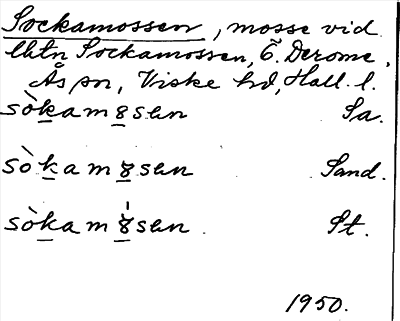 Sockamossen, mosse vid
lhtn Sockamossen, Ö. Derome,
Ås sn, Viske hd, Hall. l.
sòkam8sən Sa.
sòkam8sən Sand.
sòkam8sən. St.
1950.